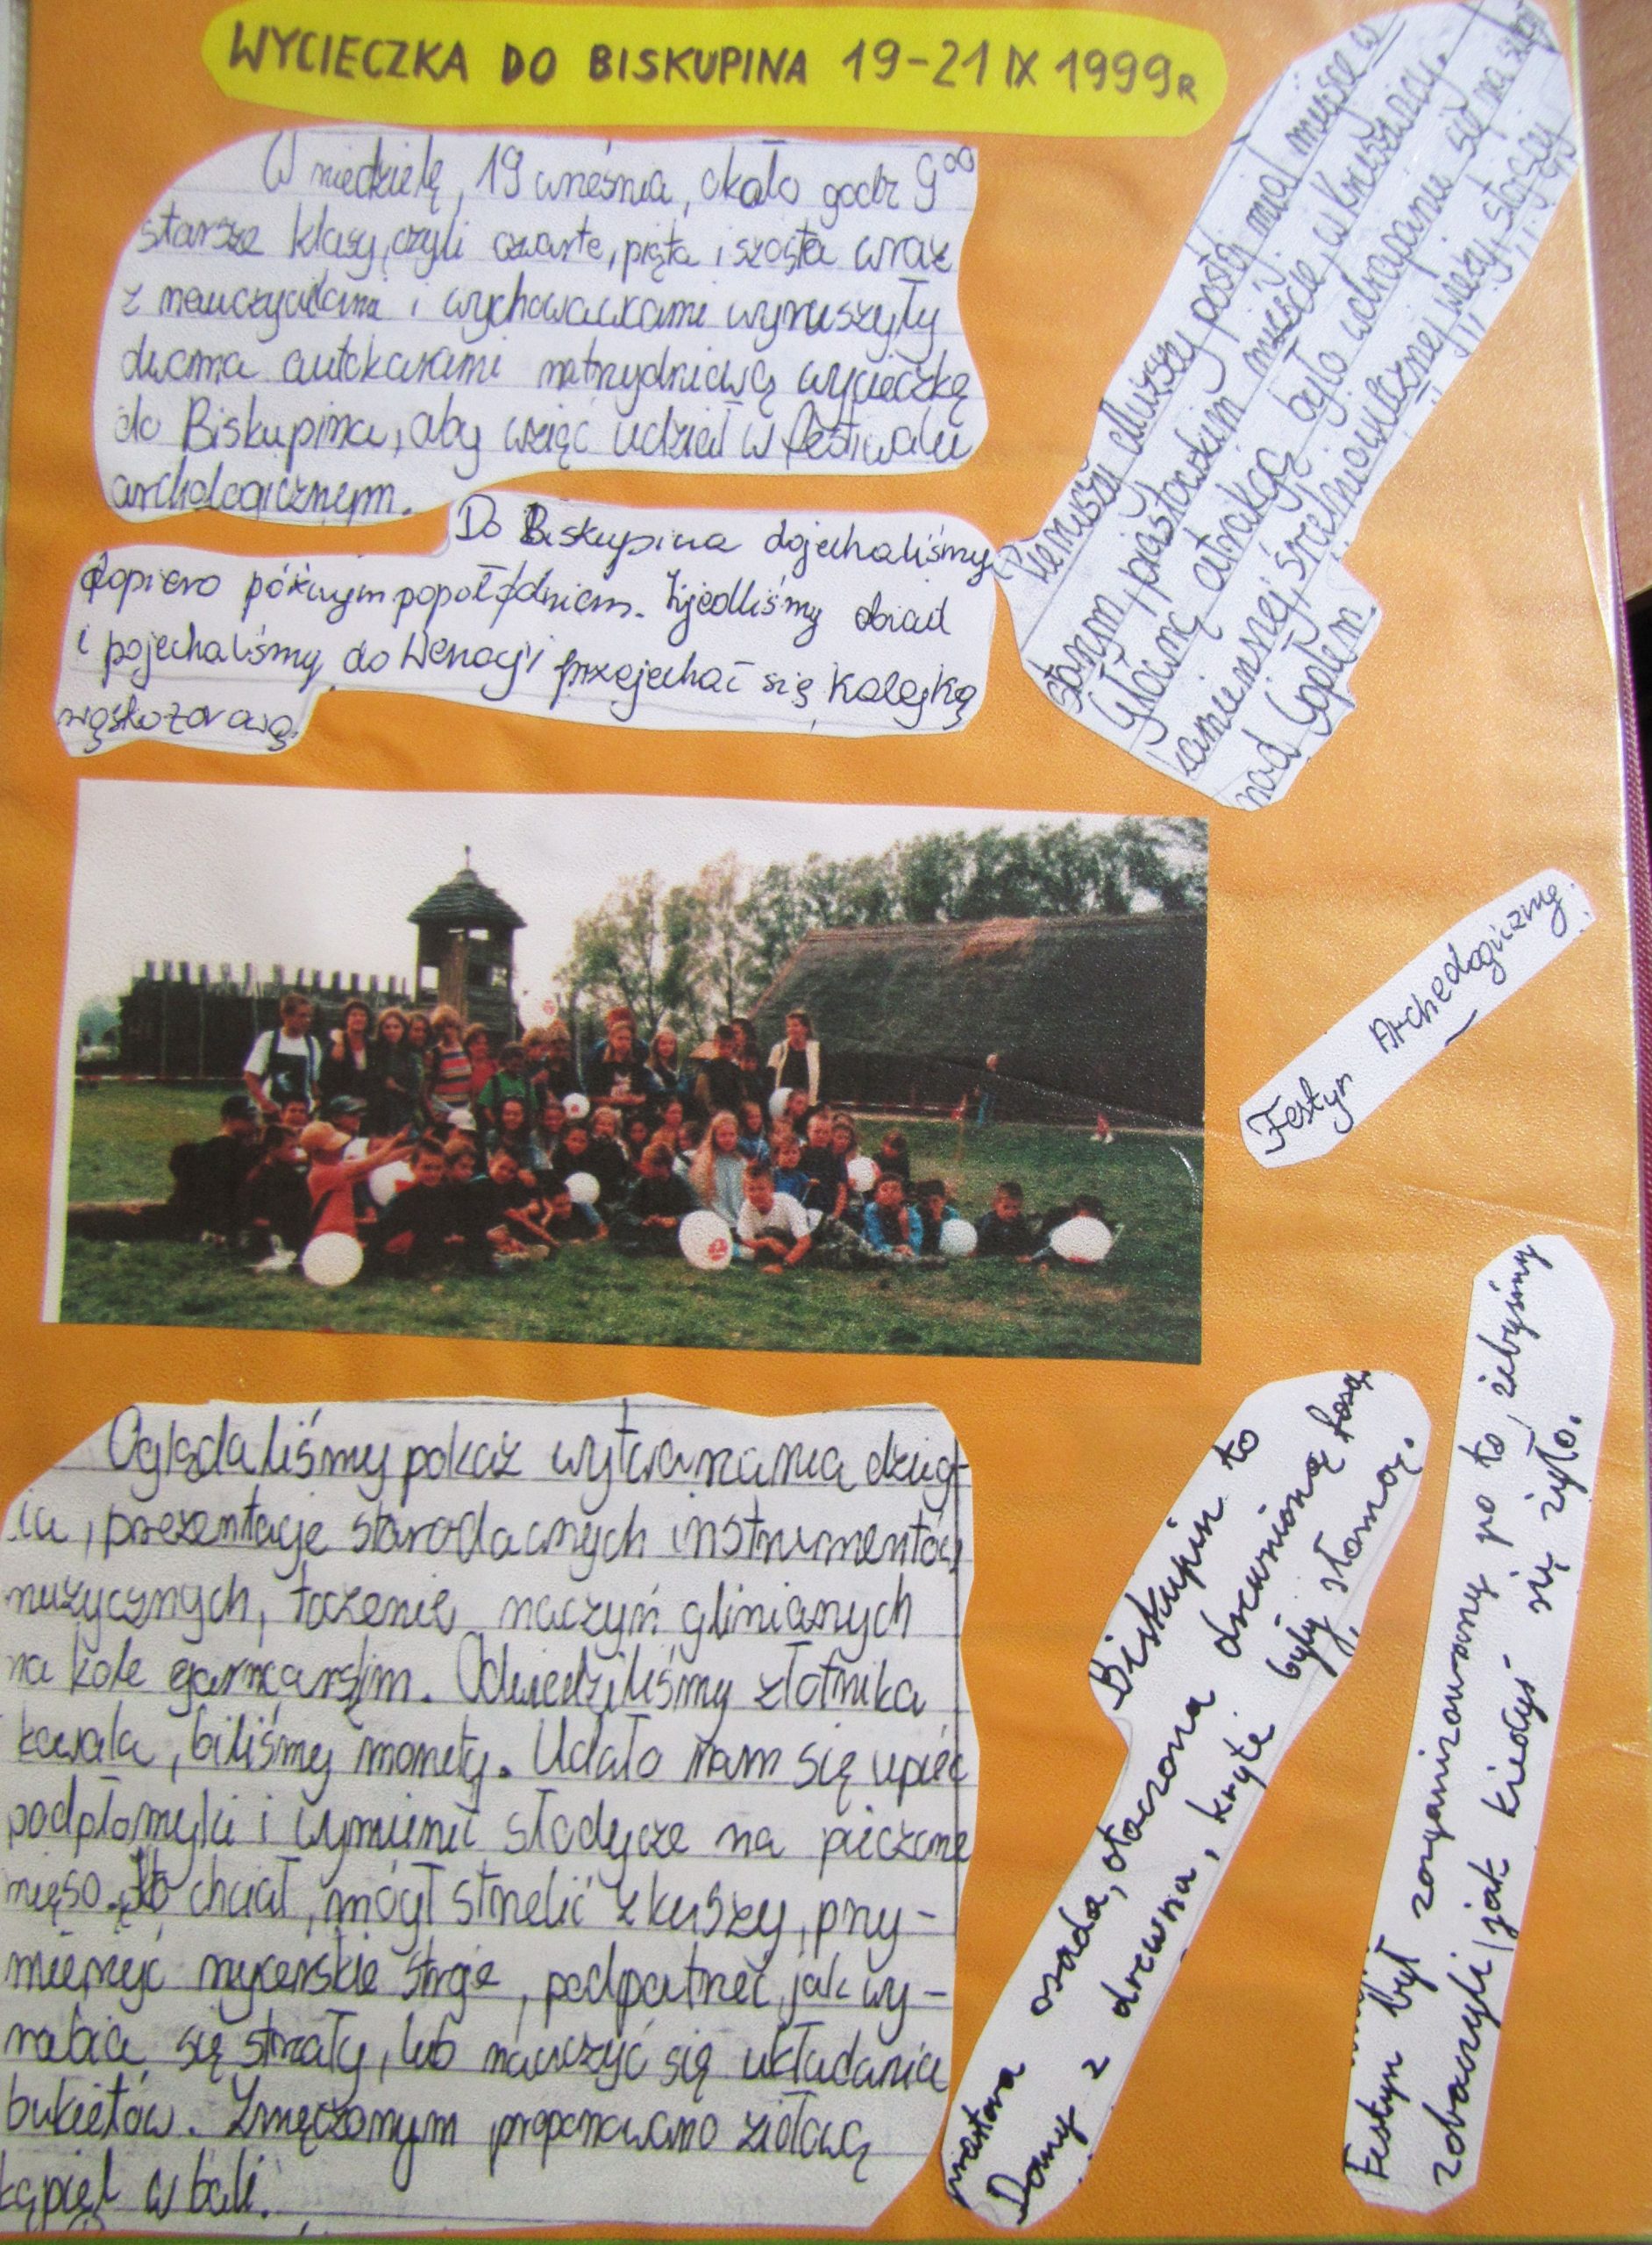 WYCIECZKA DO BISKUPINA 19-21 IX 1999R
W niedzielę, 19 września, około godz 9⁰⁰
starsze klasy, czyli czwarte, piąta i szósta wraz
z nauczycielami i wychowawcami wyruszyły
dwoma autokarami na trzydniową wycieczkę
do Biskupina, aby wziąć udział w festiwalu
archologicznym.
Do Biskupina dojechaliśmy
dopiero późnym popołudniem. Zjedliśmy obiad
i pojechaliśmy do Wenecji przejechać się kolejką
wąskotorową
Pierwszy dłuższy postój miał miejsce w
starym, piastowskim mieście, w Kruszwicy.
Główną atrakcją było wdrapanie się na
kamiennej, średniowiecznej wieży, stojącej
nad Gopłem.
Festyn Archeologiczny
Oglądaliśmy pokaz wytwarzania dzieg-
ciu, prezentację starodawnych instrumentów
muzycznych, toczenie naczyń glinianych
na kole garncarskim. Odwiedziliśmy złotnika
kowala, biliśmy monety. Udało nam się upiec
podpłomyki i wymienić słodycze na pieczone
mięso. Kto chciał, mógł strzelić z kuszy, przy-
mierzyć rycerskie stroje, podpatrzeć jak wy-
rabia się strzały, lub nauczyć się układania
bukietów. Zmęczonym proponowano ziołową
kąpiel w bali.
Biskupin to
prastara osada, otoczona drewnianą fosą.
Domy z drewna, kryte były słomą.
Festyn był zorganizowany po to, żebyśmy
zobaczyli jak kiedyś się żyło.